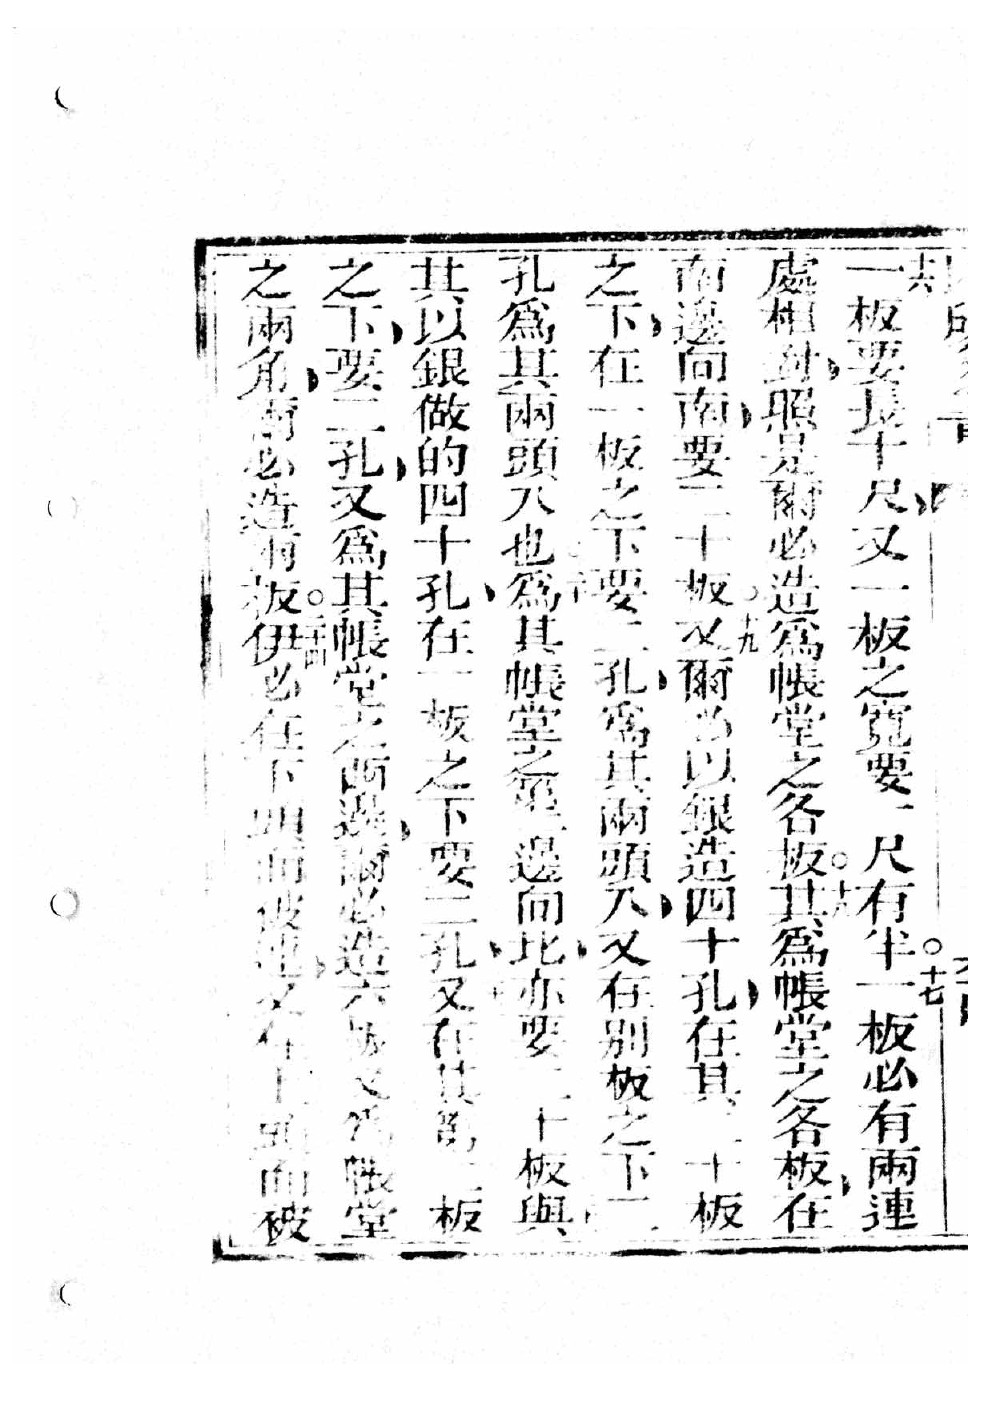 一板要長十尺又一板之寬要一尺有半一板必有兩連
處相對照是爾必造爲帳堂之各板其爲帳堂之各板在
南邊向南要二十板又爾必以銀造四十孔在其二十板
之下在一板之下要二孔爲其兩頭入又在別板之下二
孔爲其兩頭入也爲其帳堂之第二邊向北亦要二十板與
其以銀做的四十孔在一板之下要二孔又在其爲一板
之下要二孔又爲其帳堂之西邊爾必造六板又爲帳堂
之兩角爾必造兩板伊必在下頭而被連又在上頭而被
十六
十七
十八
十九